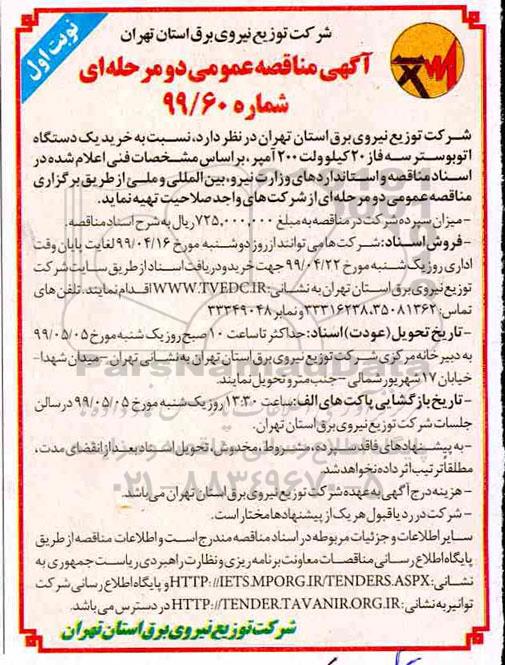 نوبت اول
شرکت توزیع نیروی برق استان تهران
آگهی مناقصه عمومی دو مرحله‌ای
شماره ۹۹/۶۰
شرکت توزیع نیروی برق استان تهران در نظر دارد، نسبت به خرید یک دستگاه
اتوبوستر سه فاز ۲۰ کیلو ولت ۲۰۰ آمپر، بر اساس مشخصات فنی اعلام شده در
اسناد مناقصه و استانداردهای وزارت نیرو، بین المللی و ملی از طریق برگزاری
مناقصه عمومی دو مرحله‌ای از شرکت های واجد صلاحیت تهیه نماید.
-میزان سپرده شرکت در مناقصه به مبلغ ۷۲۵,۰۰۰,۰۰۰ ریال به شرح اسناد مناقصه.
-فروش اسناد: شرکت ها می توانند از روز دوشنبه مورخ ۹۹/۰۴/۱۶ لغایت پایان وقت
اداری روز یک شنبه مورخ ۹۹/۰۴/۲۲ جهت خرید و دریافت اسناد از طریق سایت شرکت
توزیع نیروی برق استان تهران به نشانی: WWW.TVEDC.IR اقدام نمایند. تلفن های
تماس: ۳۵۰۸۱۳۶۲-۳۳۳۱۶۲۳۸ و نمابر ۳۳۳۴۹۰۴۸
-تاریخ تحویل (عودت) اسناد: حداکثر تا ساعت ۱۰ صبح روز یک شنبه مورخ ۹۹/۰۵/۰۵
به دبیرخانه مرکزی شرکت توزیع نیروی برق استان تهران به نشانی تهران -میدان شهدا-
خیابان ۱۷ شهریور شمالی -جنب مترو تحویل نمایند.
-تاریخ بازگشایی پاکت های الف: ساعت ۱۳:۳۰ روز یک شنبه مورخ ۹۹/۰۵/۰۵ در سالن
جلسات شرکت توزیع نیروی برق استان تهران.
-به پیشنهادهای فاقد سپرده، مشروط، مخدوش، تحویل اسناد بعد از انقضای مدت،
مطلقا ترتیب اثر داده نخواهد شد.
-هزینه درج آگهی به عهده شرکت توزیع نیروی برق استان تهران می باشد.
-شرکت در رد یا قبول هر یک از پیشنهادها مختار است.
سایر اطلاعات و جزئیات مربوطه در اسناد مناقصه مندرج است و اطلاعات مناقصه از طریق
پایگاه اطلاع رسانی مناقصات معاونت برنامه ریزی و نظارت راهبردی ریاست جمهوری به
نشانی: HTTP://IETS.MPORG.IR/TENDERS.ASPX و پایگاه اطلاع رسانی شرکت
توانیر به نشانی: HTTP://TENDER.TAVANIR.ORG.IR در دسترس می باشد.
شرکت توزیع نیروی برق استان تهران
ParsNamadData
۰۲۱-۸۸۳۴۹۶۷۰-۵